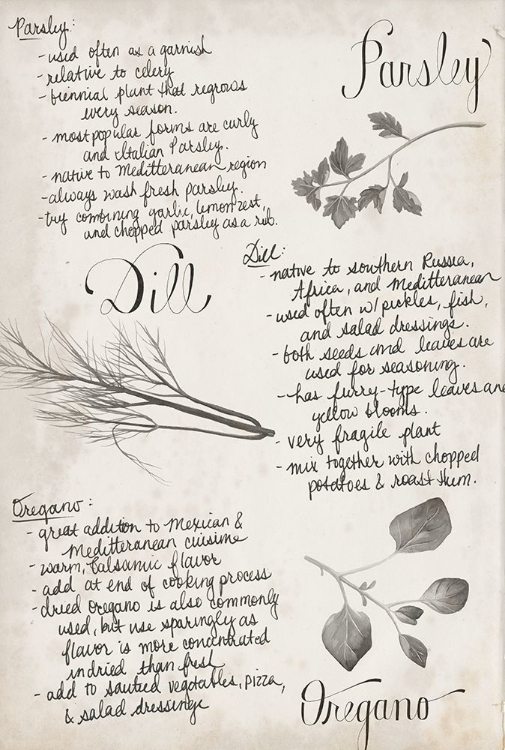 Parsley:
- used often as a garnish
- relative to celery
- biennial plant that regrows
every season.
- most popular forms are curly
and Italian Parsley.
- native to Meditteranean region
- always wash fresh parsley.
- try combining garlic, lemon zest,
and chopped parsley as a rub.
Parsley
Dill:
- native to southern Russia,
Africa, and Meditteranean
- used often w/ pickles, fish,
and salad dressings.
- both seeds and leaves are
used for seasoning.
- has furry-type leaves and
yellow blooms.
- very fragile plant
- mix together with chopped
potatoes & roast them.
Dill
Oregano:
- great addition to Mexican &
Meditteranean cuisine
- warm, balsamic flavor
- add at end of cooking process
- dried oregano is also commonly
used, but use sparingly as
flavor is more concentrated
in dried than fresh
- add to sautéed vegetables, pizza,
& salad dressings
Oregano